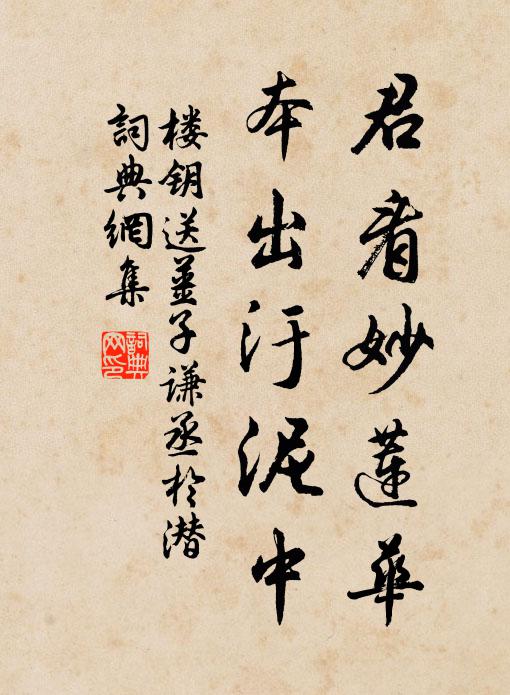 君看妙蓮華
本出汙泥中
楼鑰送姜子谦丞於潜
詞典網集
詞典網印